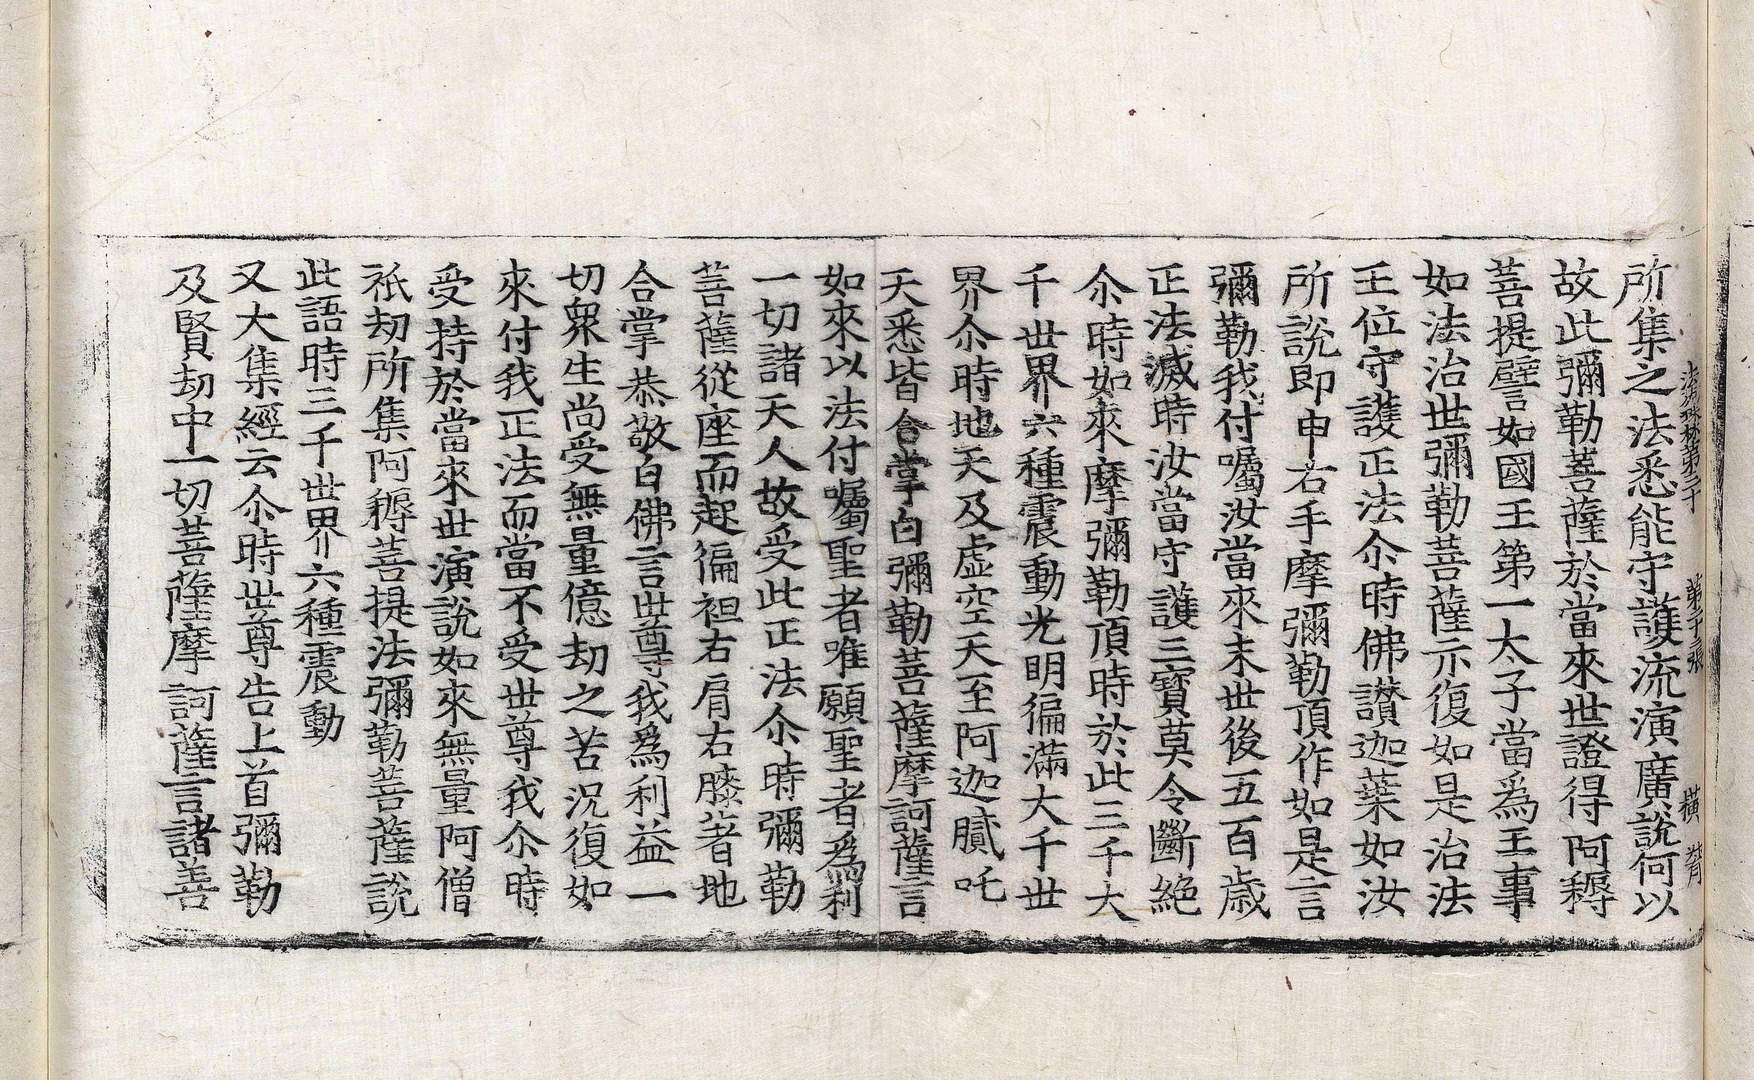 法苑珠林第三十　第二十三張　橫背
所集之法悉能守護流演廣說何以
故此彌勒菩薩於當來世證得阿耨
菩提譬如國王第一太子當爲王事
如法治世彌勒菩薩亦復如是治法
王位守護正法尒時佛讃迦葉如汝
所說即申右手摩彌勒頂作如是言
彌勒我付囑汝當來末世後五百歳
正法滅時汝當守護三寶莫令斷絶
尒時如來摩彌勒頂時於此三千大
千世界六種震動光明徧滿大千世
界尒時地天及虛空天至阿迦膩吒
天悉皆合掌白彌勒菩薩摩訶薩言
如來以法付囑聖者唯願聖者爲利
一切諸天人故受此正法尒時彌勒
菩薩從座而起徧袒右肩右膝著地
合掌恭敬白佛言世尊我爲利益一
切衆生尚受無量億劫之苦況復如
來付我正法而當不受世尊我尒時
受持於當來世演說如來無量阿僧
祇劫所集阿耨菩提法彌勒菩薩說
此語時三千世界六種震動
又大集經云尒時世尊告上首彌勒
及賢劫中一切菩薩摩訶薩言諸善